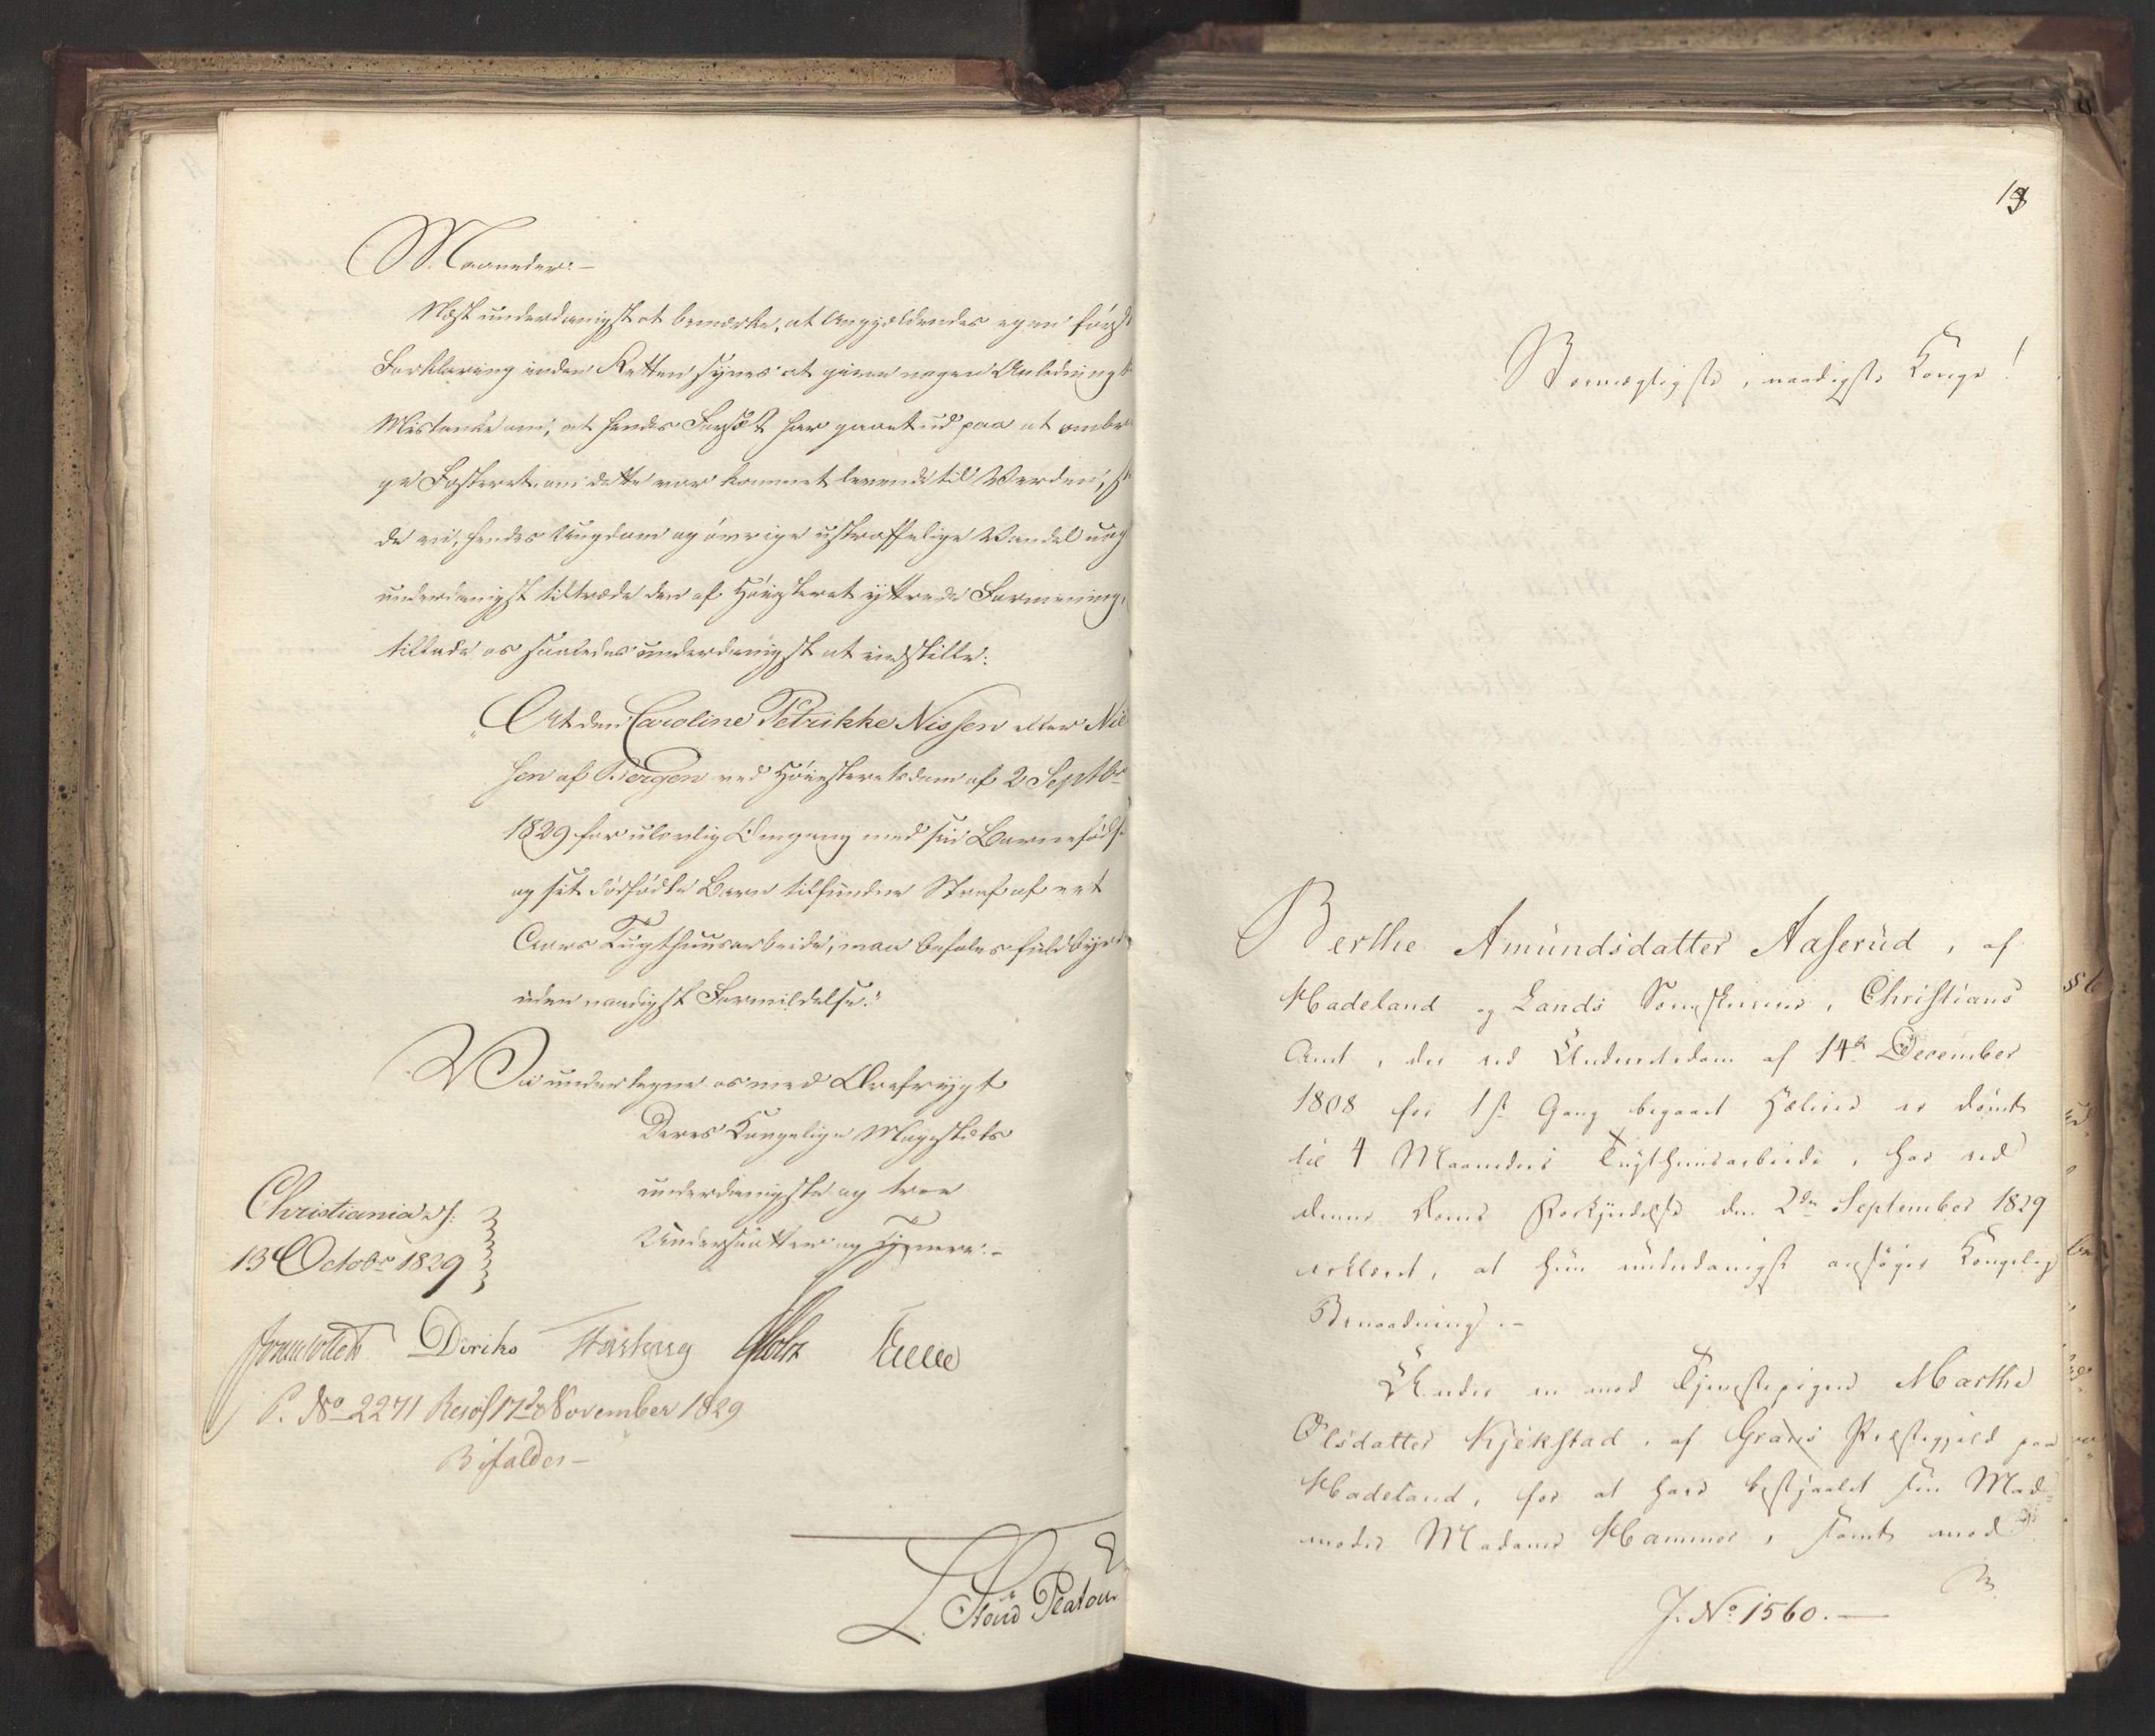 Maaneder. –
Næst underdanigst at bemærke, at Angjældendes egen første
Forklaring inden Retten synes at give nogen Anledning t
Mistanke om, at hendes Forsæt har gaaet ud paa at ombrin
ge Fosteret om dette var kommet levende til Verden,
de vi, hendes Ungdom og øvrige ustraffelige Vandel
underdanigst tiltræde den af Høiesteret yttrede Formening,
tillade os saaledes underdanigst at indstille:
„At den Caroline Petrikke Nissen eller Niel
sen af Bergen ved Høiesteretsdom af 2 Septbr
1829 for ulovlig Omgang med sin Barnefødsel
og sit dødfødte Barn tilfundne Straf af eet
Aars Tugthuusarbeide, maa befales fuldbyrdet
uden naadigst Formildelse."
Vi undertegne os med Ærefrygt
Deres Kongelige Majestæts
underdanigste og troe
Undersaatter og Tjenere. –
Christiania d:
13 Octobr 1829
Diriks Holst
P. No 2271 Resol 17de November 1829
Bifaldes –
L. Stoud Platou
13
Stormægtigste, naadigste Konge!
Berthe Amundsdatter Aaserud, af
Hadeland og Lands Sorenskriverie, Christians
Amt, der ved Underretsdom af 14de December
1808 for 1ste Gang begaaet Hælerie er dømt
til 4 Maaneders Tugthuusarbeide, har ved
denne Doms Forkyndelse den 2den September 1829
erklæret, at hun underdanigst ansøger Kongelig
Benaadning. –
Under en mod Tjenestepigen Marthe
Olsdatter Kjekstad, af Grans Præstegjeld paa
Hadeland, for at have bestjaalet sin Mad-
moder Madame Hammer, samt mod
J. No 1560. –